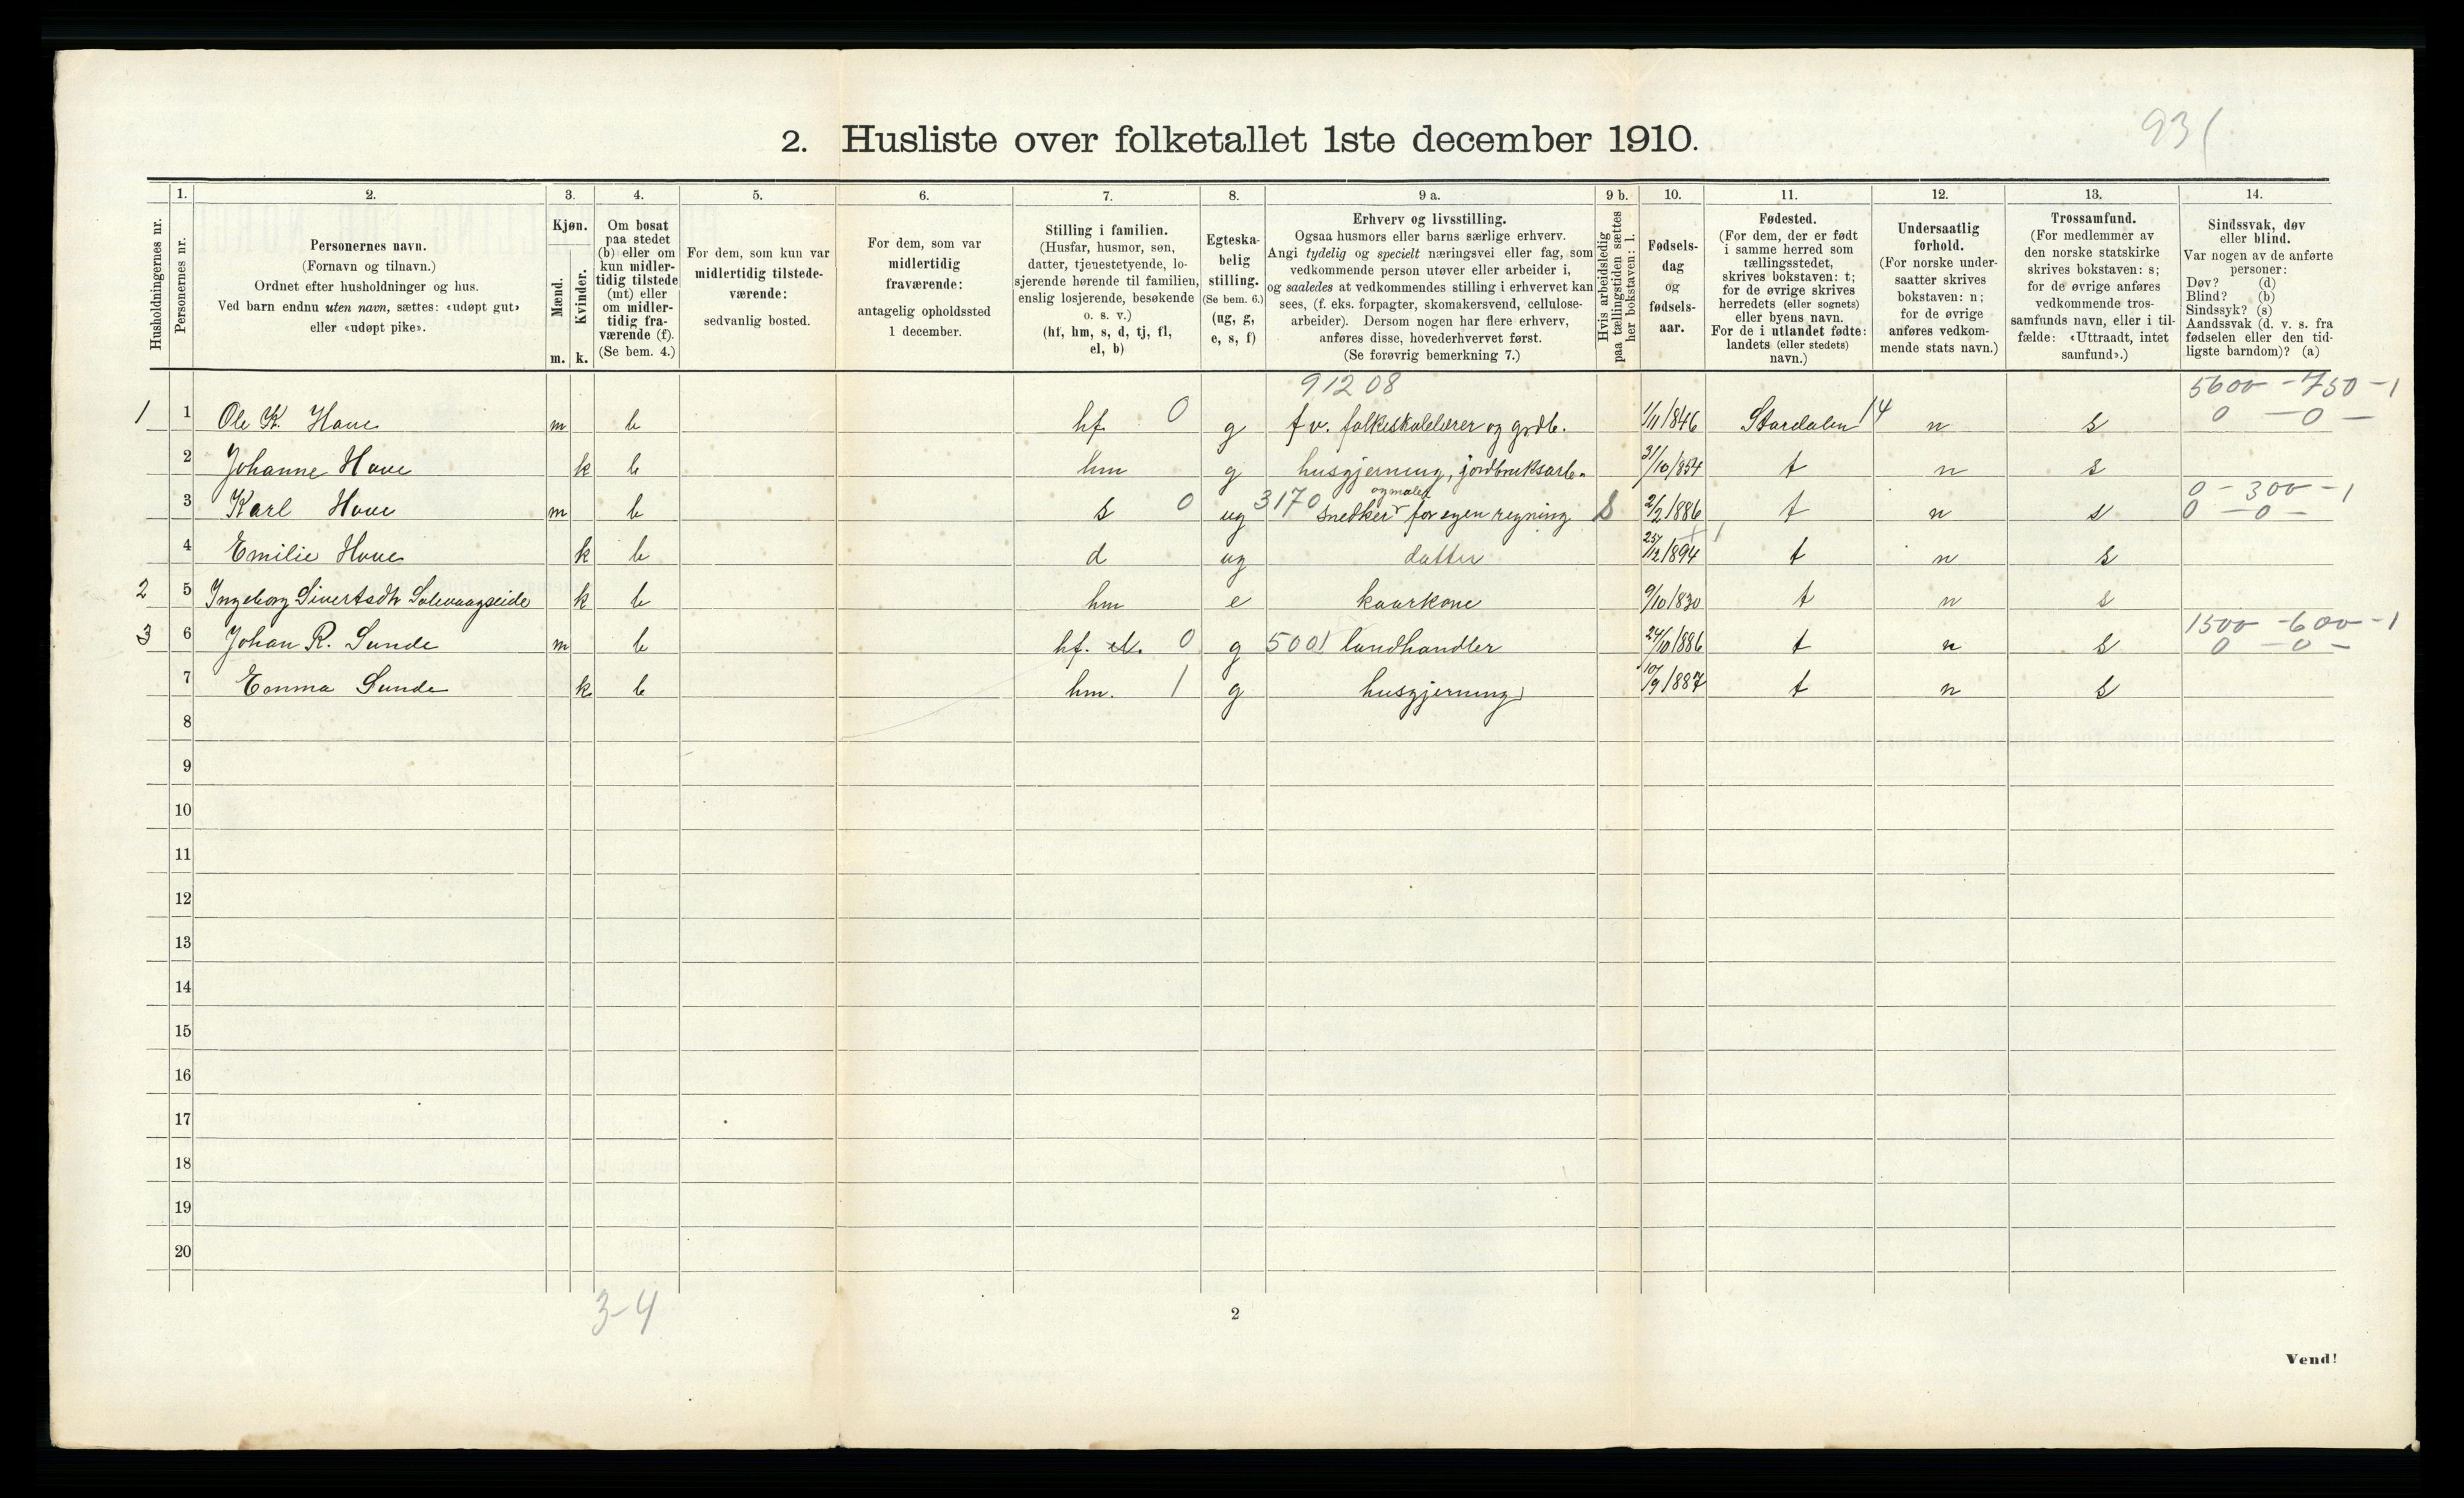 93(
2. Husliste over folketallet 1ste december 1910.
1. 2. 3. 4. 5. 6. 7. 8. 9 a. 9 b. 10. 11. 12. 13. 14.
Husholdningernes nr.
Personernes nr.
Personernes navn.
(Fornavn og tilnavn.)
Ordnet efter husholdninger og hus.
Ved barn endnu uten navn, sættes: «udøpt gut»
eller «udøpt pike».
Kjøn.
Mænd.
Kvinder.
m. k.
Om bosat
paa stedet
(b) eller om
kun midler-
tidig tilstede
(mt) eller
om midler-
tidig fra-
værende (f).
(Se bem. 4.)
For dem, som kun var
midlertidig tilstede-
værende:
sedvanlig bosted.
For dem, som var
midlertidig
fraværende:
antagelig opholdssted
1 december.
Stilling i familien.
(Husfar, husmor, søn,
datter, tjenestetyende, lo-
sjerende hørende til familien,
enslig losjerende, besøkende
o. s. v.)
(hf, hm, s, d, tj, fl,
el, b)
Egteska-
belig
stilling.
(Se bem. 6.)
(ug, g,
e, s, f)
Erhverv og livsstilling.
Ogsaa husmors eller barns særlige erhverv.
Angi tydelig og specielt næringsvei eller fag, som
vedkommende person utøver eller arbeider i,
og saaledes at vedkommendes stilling i erhvervet kan
sees, (f. eks. forpagter, skomakersvend, cellulose-
arbeider). Dersom nogen har flere erhverv,
anføres disse, hovederhvervet først.
(Se forøvrig bemerkning 7.)
Hvis arbeidsledig
paa tællingstiden sættes
her bokstaven: l.
Fødsels-
dag
og
fødsels-
aar.
Fødested.
(For dem, der er født
i samme herred som
tællingsstedet,
skrives bokstaven: t;
for de øvrige skrives
herredets (eller sognets)
eller byens navn.
For de i utlandet fødte:
landets (eller stedets)
navn.)
Undersaatlig
forhold.
(For norske under-
saatter skrives
bokstaven: n;
for de øvrige
anføres vedkom-
mende stats navn.)
Trossamfund.
(For medlemmer av
den norske statskirke
skrives bokstaven: s;
for de øvrige anføres
vedkommende tros-
samfunds navn, eller i til-
fælde: «Uttraadt, intet
samfund».)
Sindssvak, døv
eller blind.
Var nogen av de anførte
personer:
Døv? (d)
Blind? (b)
Sindssyk? (s)
Aandssvak (d. v. s. fra
fødselen eller den tid-
ligste barndom)? (a)
91208 5600 - 750 - 1
1 1 Ole K. Hove m b hf 0 g fv. folkeskolelærer og grdb. 1/11 1846 Stardalen 14 n s 0 - 0 -
2 Johanne Hove k b hm g husgjerning, jordbruksarb. 31/10 1854 t n s
og maler 0 - 300 - 1
3 Karl Hove m b s 0 ug 3170 snedker for egen regning S 2/2 1886 t n s 0 - 0 -
4 Emilie Hove k b d ug datter 1894 t n s
2 5 Ingeborg Sivertsdtr Solevaagseide k b hm e kaarkone 9/10 1830 t n s
1500 - 600 - 1
3 6 Johan R. Sunde m b hf. el. 0 g 5001 landhandler 24/10 1886 t n s 0 - 0 -
7 Emma Sunde k b hm. 1 g husgjerning 10/9 1887 t n s
8
9
10
11
12
13
14
15
16
17
18
19
20
3-4
2
Vend!